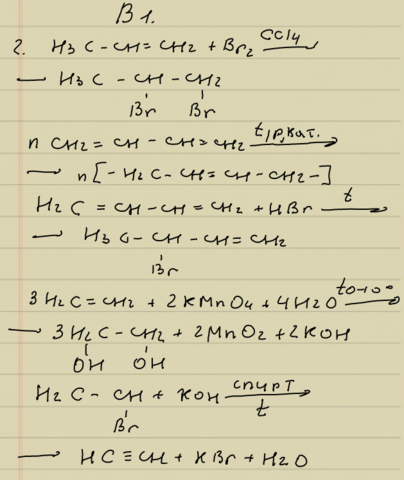 В 1.
2. H₃C-CH=CH₂ + Br₂ CCl₄
— H₃C - CH - CH₂
Br Br
n CH₂ = CH - CH = CH₂ t,p,кат.
— n[-H₂C-CH=CH-CH₂-]
H₂C = CH-CH = CH₂ + HBr t
— H₃C-CH-CH=CH₂
Br
3H₂C=CH₂ + 2KMnO₄ + 4H₂O t0-10°
— 3H₂C-CH₂ + 2MnO₂ + 2KOH
OH OH
H₂C - CH + KOH спирт
Br t
— HC≡CH + KBr + H₂O